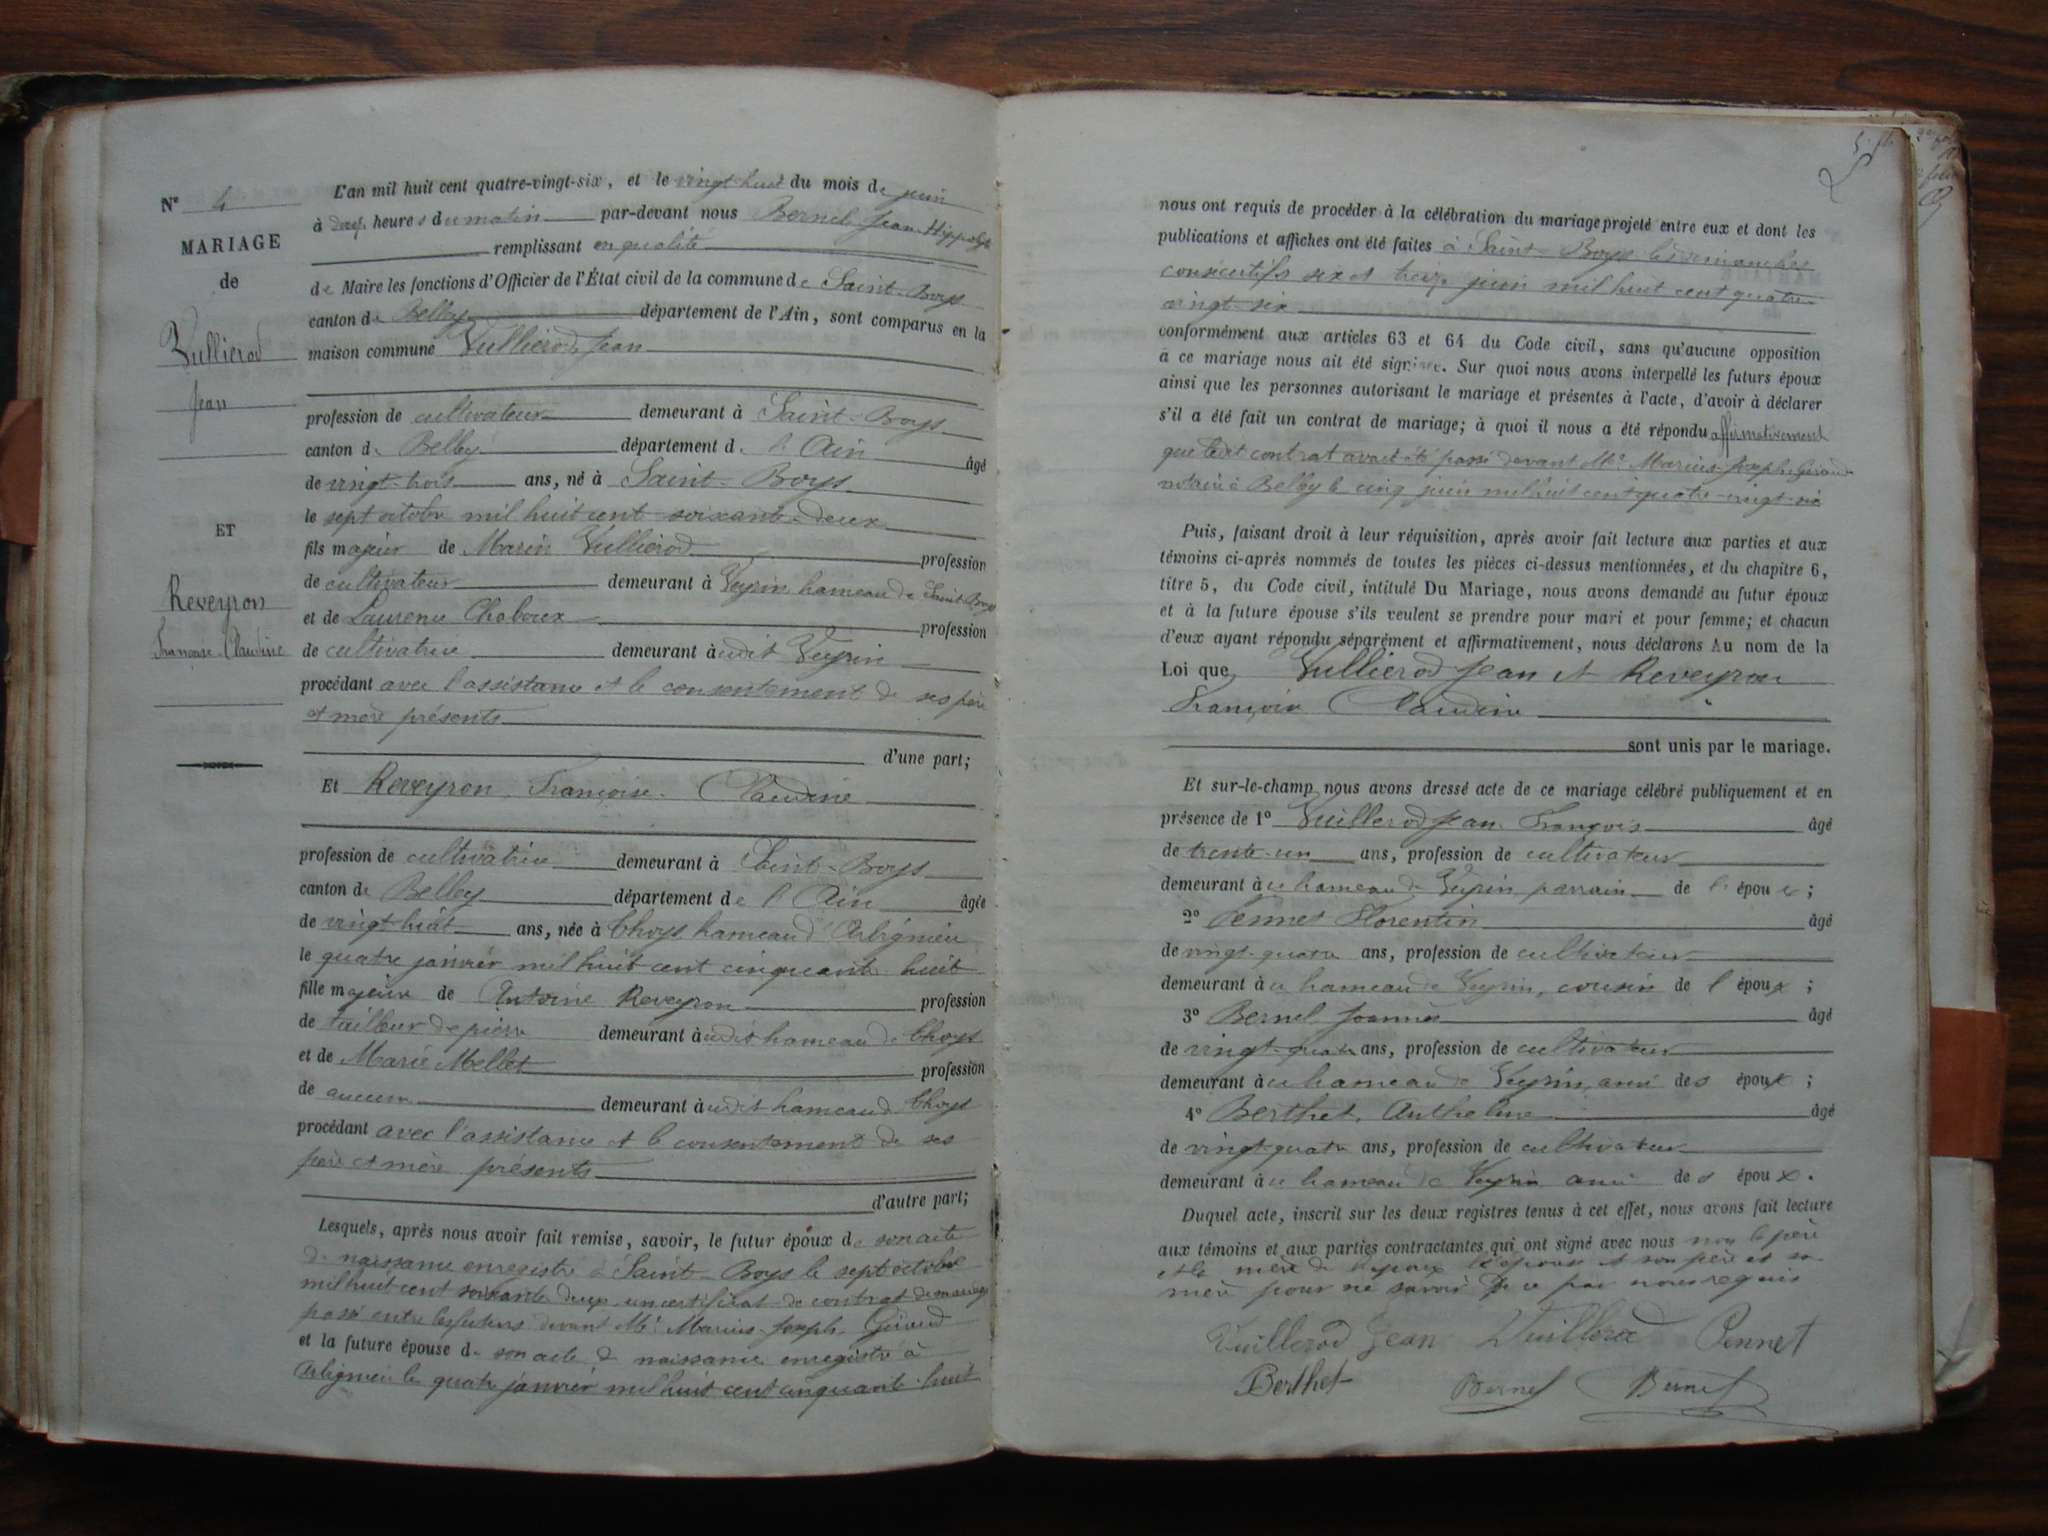 N° 4
MARIAGE
de
Vullierod
Jean
ET
Reveyron
Françoise Claudine
L'an mil huit cent quatre-vingt-six, et le vingt huit du mois de juin
à heures du matin par-devant nous Bernel Jean Hippolyte
remplissant en qualité
de Maire les fonctions d'Officier de l'État civil de la commune de Saint-Boys
canton de Belley département de l'Ain, sont comparus en la
maison commune Vullierod Jean
profession de cultivateur demeurant à Saint-Boys
canton de Belley département de l'Ain âgé
de vingt-trois ans, né à Saint-Boys
le sept octobre mil huit cent soixante-deux
fils majeur de Marin Vullierod profession
de cultivateur demeurant à Veyrin hameau de Saint-Boys
et de Laurence Chaboux profession
de cultivatrice demeurant àudit Veyrin
procédant avec l'assistance et le consentement de ses père
et mère présents
d'une part;
Et Reveyron Françoise Claudine
profession de cultivatrice demeurant à Saint-Boys
canton de Belley département de l'Ain âgée
de vingt huit ans, née à Thoys hameau d'Arbignieu
le quatre janvier mil huit cent cinquante huit
fille majeure de Antoine Reveyron profession
de tailleur de pierre demeurant àudit hameau de Thoys
et de Marie Mellet profession
de aucune demeurant àudit hameau de Thoys
procédant avec l'assistance et le consentement de ses
père et mère présents
d'autre part;
Lesquels, après nous avoir fait remise, savoir, le futur époux de son acte
de naissance enregistré à Saint-Boys le sept octobre
mil huit cent soixante deux un certificat de contrat de mariage
passé entre les futurs devant Me Marius Joseph Géraud
et la future épouse de son acte de naissance enregistré à
Arbignieu le quatre janvier mil huit cent cinquante-huit
nous ont requis de procéder à la célébration du mariage projeté entre eux et dont les
publications et affiches ont été faites à Saint-Boys les dimanches
consécutifs six et treize juin mil huit cent quatre
vingt-six
conformément aux articles 63 et 64 du Code civil, sans qu'aucune opposition
à ce mariage nous ait été signifiée. Sur quoi nous avons interpellé les futurs époux
ainsi que les personnes autorisant le mariage et présentes à l'acte, d'avoir à déclarer
s'il a été fait un contrat de mariage; à quoi il nous a été répondu affirmativement
que ledit contrat avait été passé devant Me Marius Joseph Géraud
notaire à Belley le cinq juin mil huit cent quatre-vingt-six
Puis, faisant droit à leur réquisition, après avoir fait lecture aux parties et aux
témoins ci-après nommés de toutes les pièces ci-dessus mentionnées, et du chapitre 6,
titre 5, du Code civil, intitulé Du Mariage, nous avons demandé au futur époux
et à la future épouse s'ils veulent se prendre pour mari et pour femme; et chacun
d'eux ayant répondu séparément et affirmativement, nous déclarons Au nom de la
Loi que Vullierod Jean et Reveyron
Françoise Claudine
sont unis par le mariage.
Et sur-le-champ nous avons dressé acte de ce mariage célébré publiquement et en
présence de 1° Vuillerod Jean François âgé
de trente-un ans, profession de cultivateur
demeurant à hameau de Veyrin parrain de l'époux;
2° Pennet Florentin âgé
de vingt-quatre ans, profession de cultivateur
demeurant à hameau de Veyrin, cousin de l'époux;
3° Bernel Joannès âgé
de vingt-quatre ans, profession de cultivateur
demeurant à hameau de Veyrin, ami des époux;
4° Berthet, Anthelme âgé
de vingt-quatre ans, profession de cultivateur
demeurant à hameau de Veyrin ami des époux.
Duquel acte, inscrit sur les deux registres tenus à cet effet, nous avons fait lecture
aux témoins et aux parties contractantes qui ont signé avec nous non le père
et la mère de l'époux l'épouse et son père et sa
mère pour ne savoir de ce par nous requis
Vuillerod Jean Vuillerod Pennet
Berthet Bernel Bernel